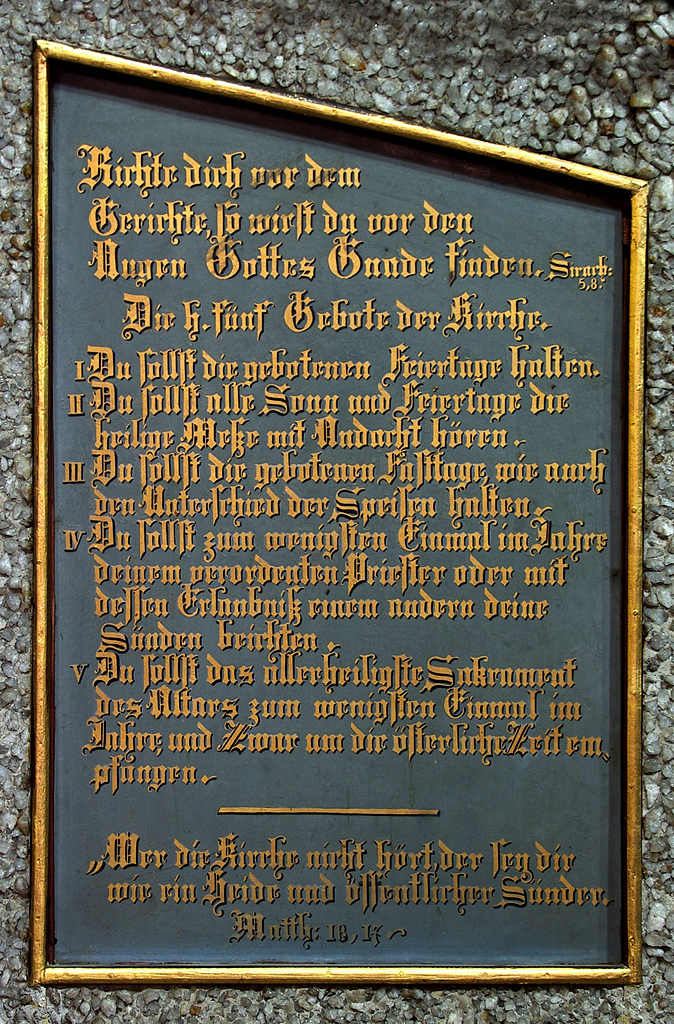 Richte dich vor dem
Gerichte, so wirst du vor den
Augen Gottes Gnade finden. Sirach:
5,8.
Die h. fünf Gebote der Kirche.
I Du sollst die gebotenen Feiertage halten.
II Du sollst alle Sonn und Feiertage die
heilige Meße mit Andacht hören.
III Du sollst die gebotenen Fasttage, wie auch
den Unterschied der Speisen halten.
IV Du sollst zum wenigsten Einmal im Jahre
deinem verordenten Priester oder mit
dessen Erlaubniß einem andern deine
Sünden beichten.
V Du sollst das allerheiligste Sakrament
des Altars zum wenigsten Einmal im
Jahre, und Zwar um die österliche Zeit em„
pfangen.
„Wer die Kirche nicht hört, der sey dir
wie ein Heide und öffentlicher Sünder.
Matth: 18, 17